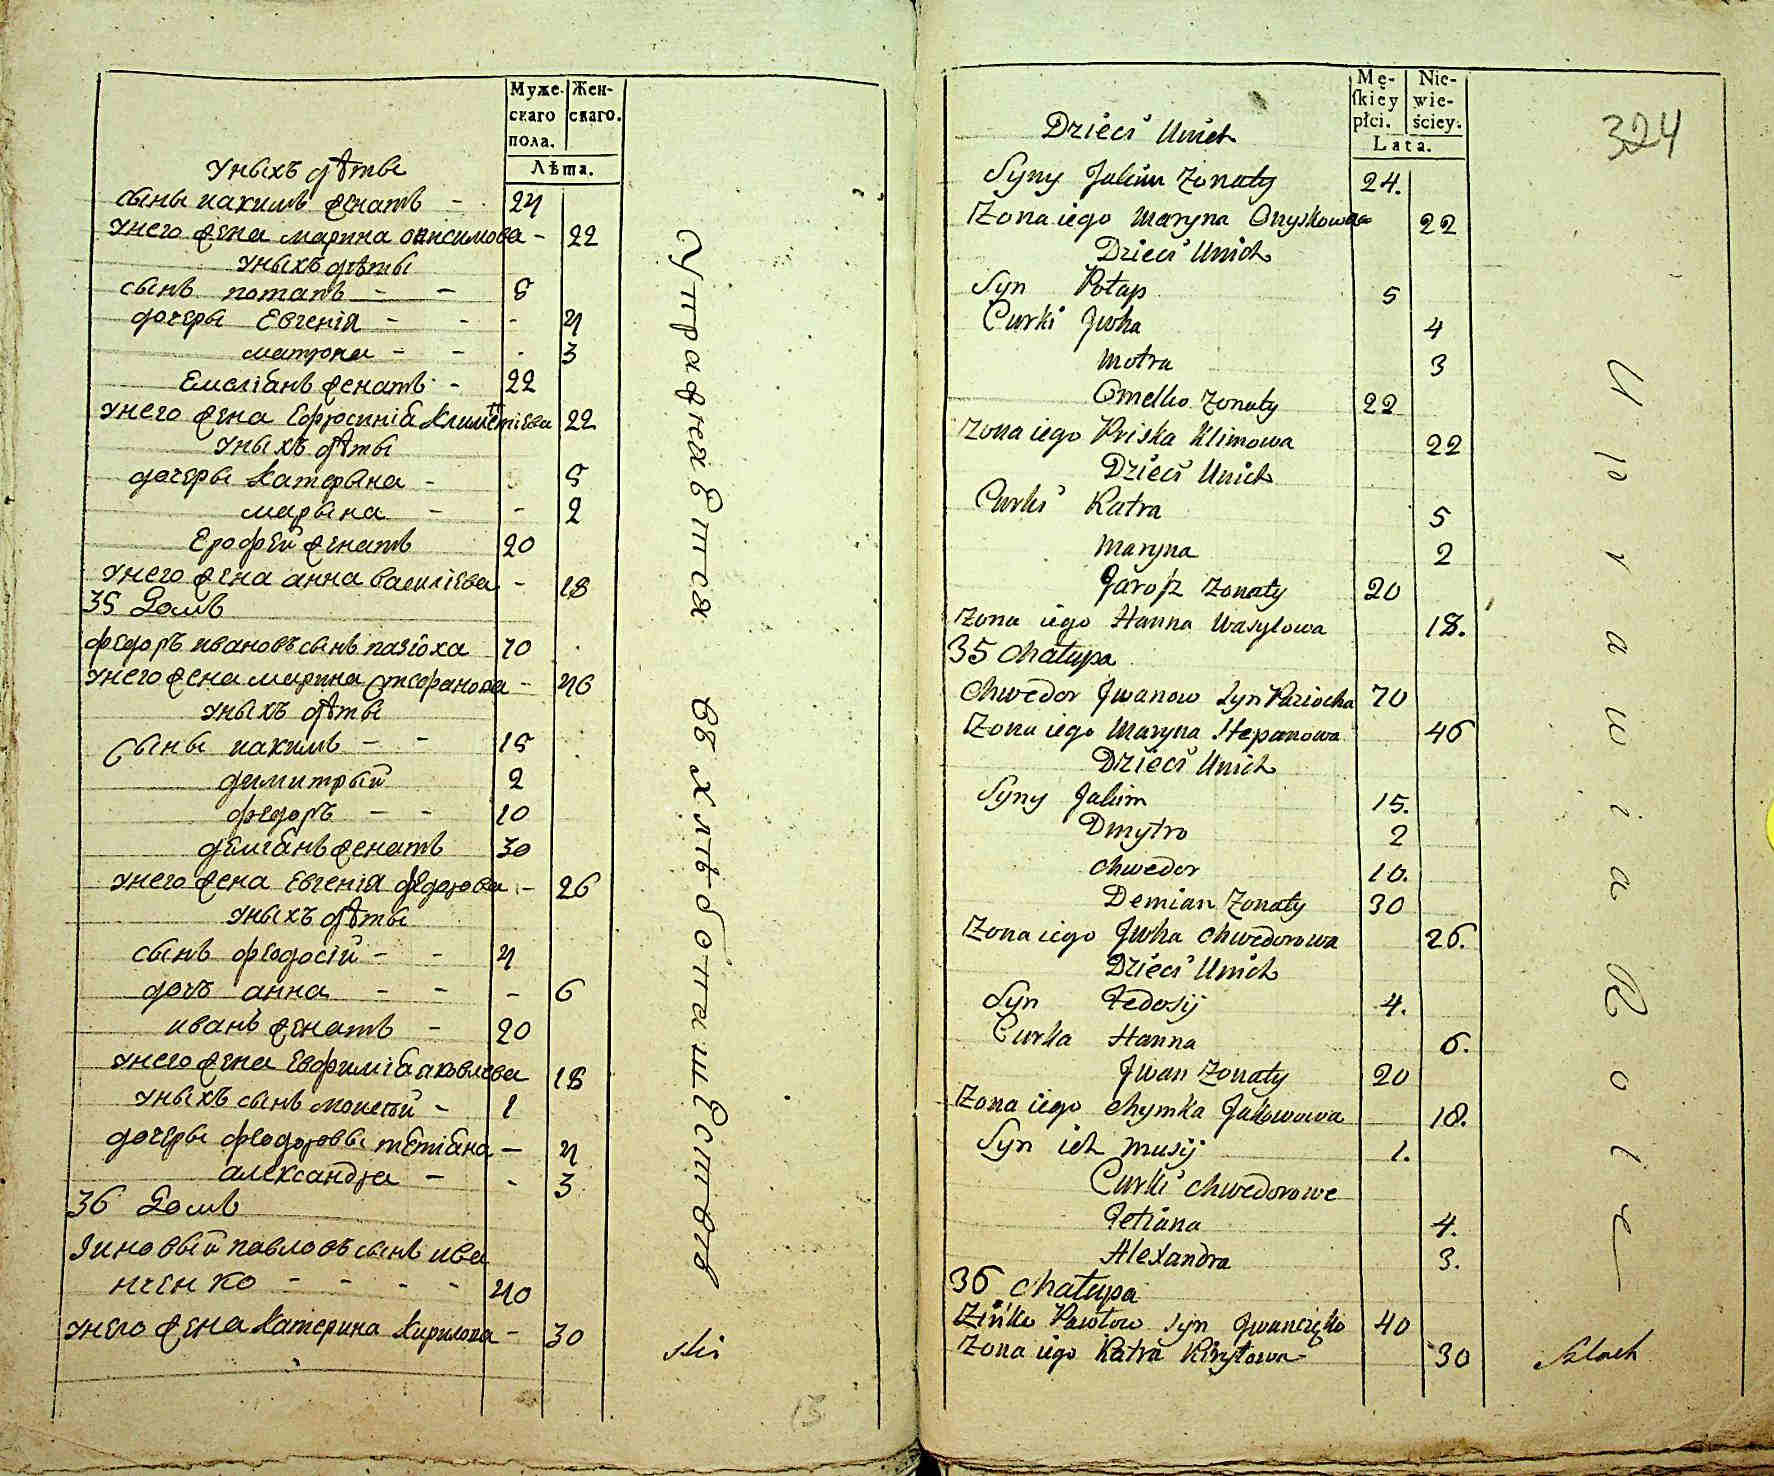 Муже-
скаго
пола.
Жен-
скаго.
Лѣта.
уныхъ дѣты
сыны иакимъ женатъ - 24
унего жена марина онисимова - 22
уныхъ дѣты
сынъ потапъ - - 5
дочеры Евгенія - - - 4
матрона - - - 3
Емеліанъ женатъ - 22
унего жена Ефросинія Климентіева 22
уныхъ дѣты
дочеры Катерына - 5
марына - - 2
Ерофей женатъ 20
унего жена анна василіева - 18
35 Домъ
федоръ ивановъ сынъ пазіоха 70
унего жена марина Стефанова - 46
уныхъ дѣты
Сыны иакимъ - - 15
димитрый 2
федоръ - - 10
деміанъ женатъ 30
унего жена Евгенія федорова - 26
уныхъ дѣты
сынъ феодосій - - 4
дочъ анна - - - 6
иванъ женатъ - 20
унего жена Евфимія аковлева 18
уныхъ сынъ моисей - 1
дочеры феодоровы тетіана - 4
александра - - 3
36 Домъ
Зиновый павловъ сынъ ива
нченко - - - - 40
унего жена Катерина Кирилова - 30
Упражняется въ хлѣбопашествѣ
13
Mę-
skiey
płci.
Nie-
wie-
ściey.
Lata.
324
Dzieci Unich
Syny Jakim Zonaty 24.
Zona iego Maryna Onyskowa 22
Dzieci Unich
Syn Potap 5
Curki Jwha 4
Motra 3
Omelko Zonaty 22
Zona iego Priska Klimowa 22
Dzieci Unich
Curki Katra 5
Maryna 2
Jarosz Zonaty 20
Zona iego Hanna Wasylowa 18.
35 Chałupa
Chwedor Jwanow Syn Paziocha 70
Zona iego Maryna Stepanowa 46
Dzieci Unich
Syny Jakim 15.
Dmytro 2
Chwedor 10.
Demian Zonaty 30
Zona iego Jwha Chwedorowa 26.
Dzieci Unich
Syn Fedosij 4.
Curka Hanna 6.
Jwan Zonaty 20
Zona iego Chymka Jakowowa 18.
Syn ich Musij 1.
Curki Chwedorowe
Tetiana 4.
Alexandra 3.
36 Chałupa
Zińko Pawłow Syn Jwanczęko 40
Zona iego Katra Kiryłowa - 30
Uprawia Rolę
Szlach